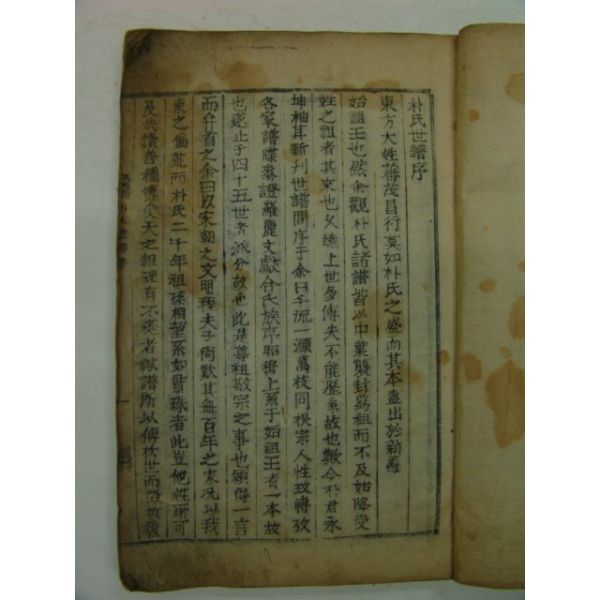 朴氏世譜序
東方大姓蕃茂昌行莫如朴氏之盛而其本盖出於新羅
始祖王也然余觀朴氏諸譜皆以中葉襲封爲祖而不及始降受
姓之祖者其來也久遠上世多傳失不能歷系故也歟今朴君永
坤袖其新刊世譜問序于余曰千流一源萬枝同根宗人性玟博攷
各家譜牒叅證羅麗文獻合氏族序昭穆上系于始祖王者一本故
也遂止于四十五世者派分故也此是尊祖敬宗之事也願得一言
而弁首之余曰以宋朝之文明程夫子尙歎其無百年之家况以我
東之偏荒而朴氏二千年祖孫相望系如貫珠者此豈他姓所可
及哉積善種德天之報理有不忒者歟譜所以傳於世而